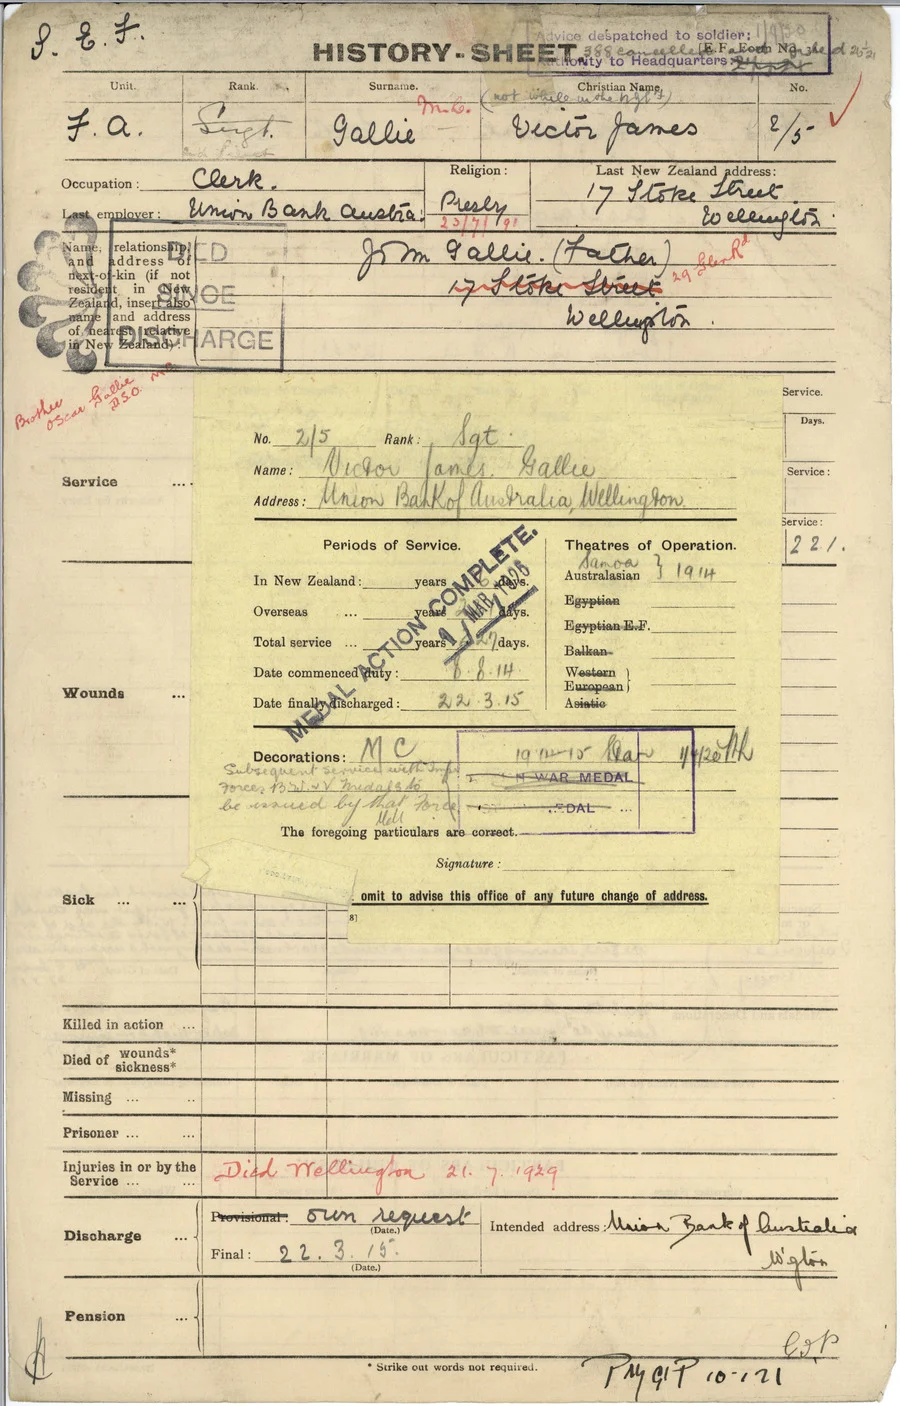 S. E. F.
Advice despatched to soldier:
HISTORY-SHEET.
E.F. Form No.
Authority to Headquarters:
Unit. Rank. Surname. Christian Name. No.
M.C. (not while in the NZEF)
F. A. Sergt. Gallie Victor James 2/5
Occupation: Clerk.
Religion: Presby
Last New Zealand address:
17 Stoke Street
Last employer: Union Bank Austra. Wellington.
23/7/91
Name, relationship, and address of next-of-kin (if not resident in New Zealand, insert also name and address of nearest relative in New Zealand):
John Gallie. (Father)
17 Stoke Street 29 Glen Rd
Wellington.
DIED
SINCE
DISCHARGE
Brother
Oscar Gallie
D.S.O. M.C.
Service.
Days.
Service ...
Service:
Service:
221.
No. 2/5 Rank: Sgt.
Name: Victor James. Gallie
Address: Union Bank of Australia, Wellington
Periods of Service. Theatres of Operation.
Samoa
In New Zealand: years days. Australasian } 1914
Overseas ... years days. Egyptian
Egyptian E.F.
Total service ... years 227 days. Balkan
Date commenced duty: 8.8.14 Western
European
Date finally discharged: 22.3.15 Asiatic
MEDAL ACTION COMPLETE.
1 MAR 1925
Decorations: M C 1914-15 Star
Subsequent service with Imp
Forces B.W. & V Medals to
be issued by that Force
WAR MEDAL
The foregoing particulars are correct.
Signature:
omit to advise this office of any future change of address.
8]
Wounds ...
Sick ... ...
Killed in action ...
Died of wounds*
sickness*
Missing ... ...
Prisoner ... ...
Injuries in or by the
Service ... ...
Died Wellington 21. 7. 1929
Discharge ...
Provisional: own request
(Date.)
Final: 22. 3. 15.
(Date.)
Intended address: Union Bank of Australia
W'gton
Pension ...
* Strike out words not required.
10-1-21